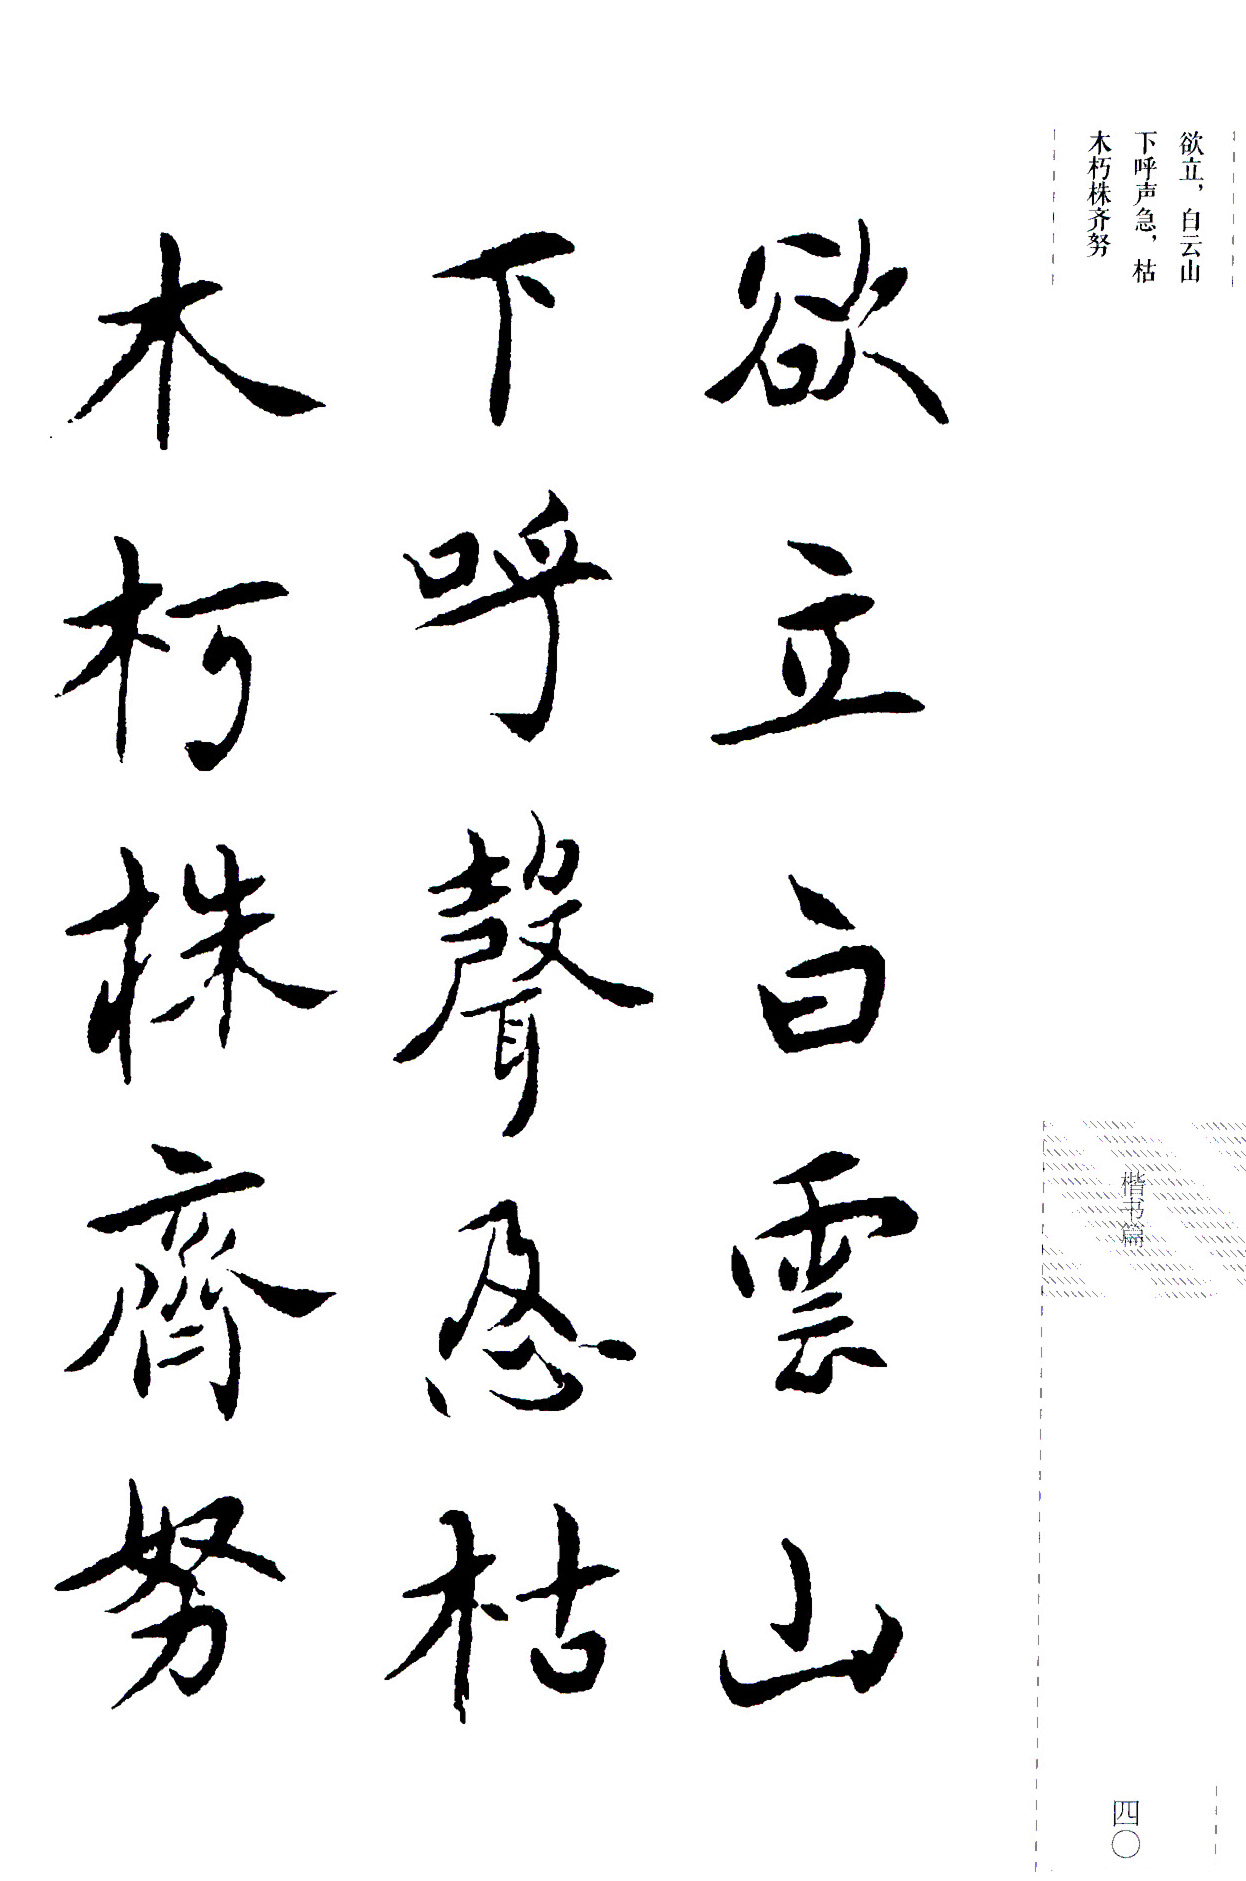 欲立，白云山
下呼声急，枯
木朽株齐努
欲立白雲山
下呼聲急枯
木朽株齊努
楷书篇
四〇